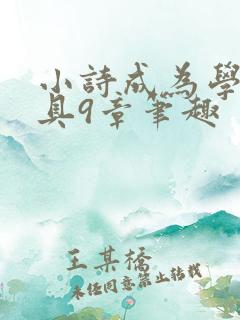 小詩成為學
具9章筆趣
王某橋
未经同意禁止转载